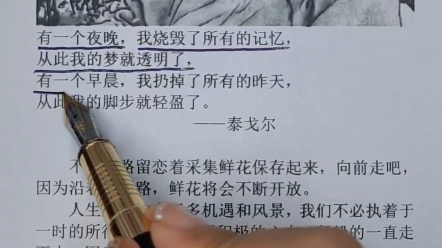 有一个夜晚，我烧毁了所有的记忆，
从此我的梦就透明了，
有一个早晨，我扔掉了所有的昨天，
从此我的脚步就轻盈了。
——泰戈尔
不 路留恋着采集鲜花保存起来，向前走吧，
因为沿 路，鲜花将会不断开放。
人生 多机遇和风景，我们不必执着于
一时的所 积极的 一直走